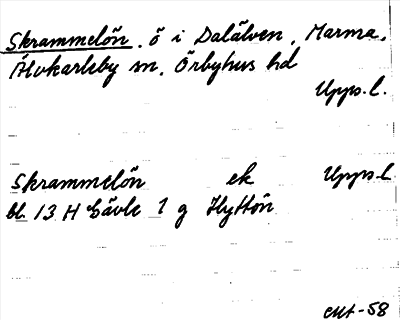 Skrammelön, ö i Dalälven, Marma,
Älvkarleby sn, Örbyhus hd
Upps.l.
Skrammelön ek Upps.l
bl. 13 H Gävle 1 g Hyttön
-58